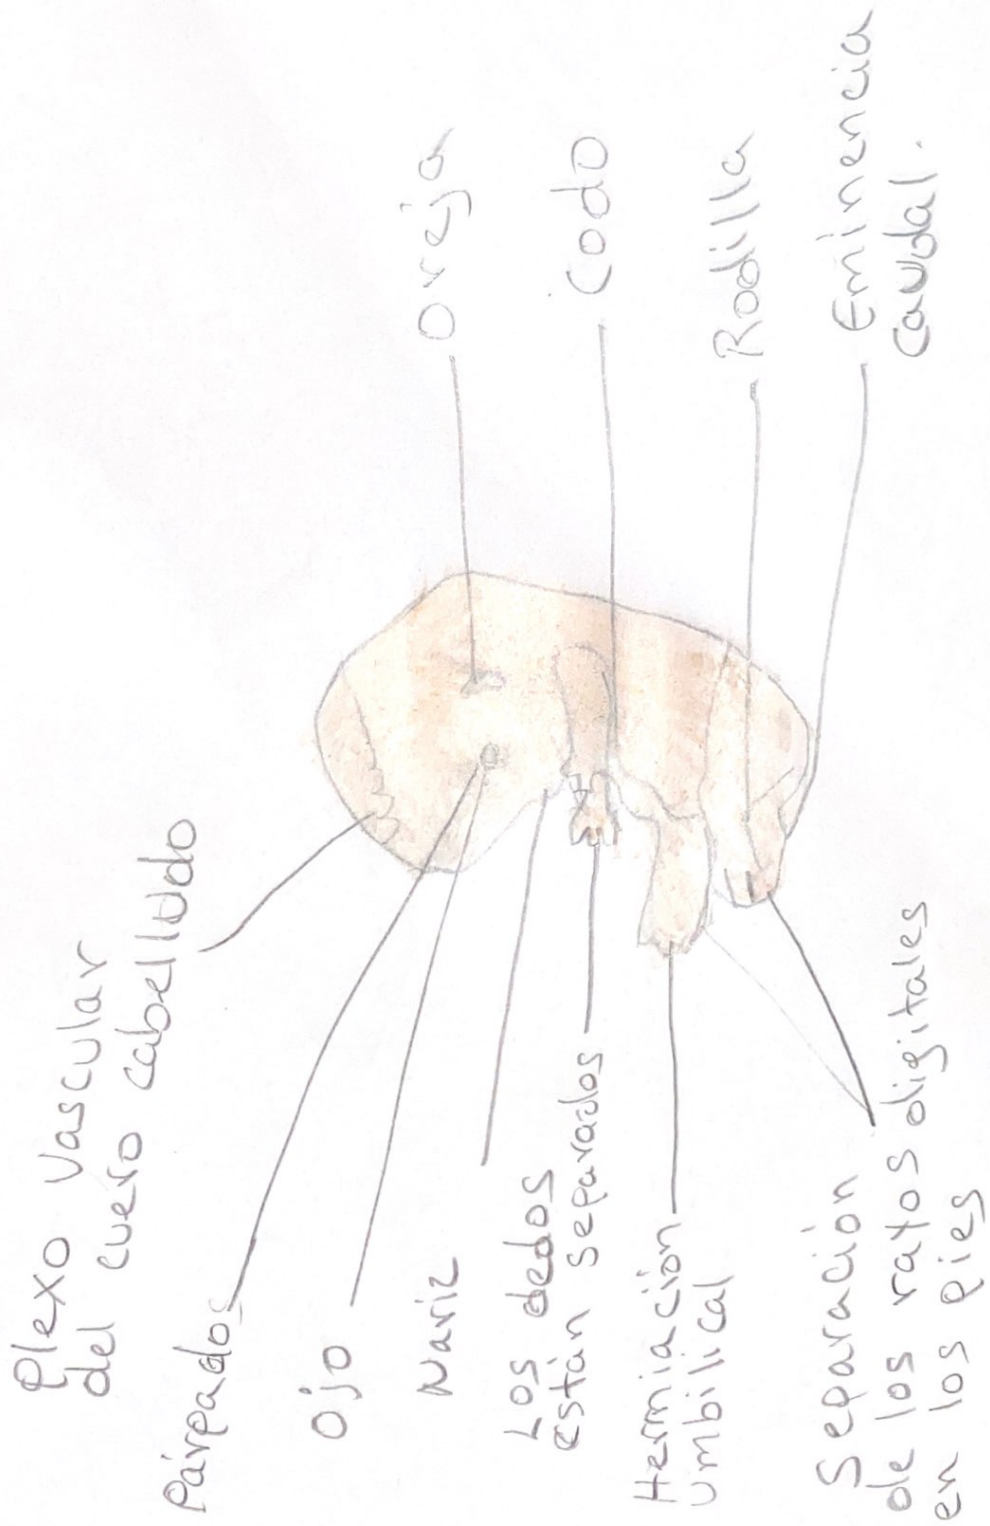 Plexo vascular
del cuero cabelludo
Párpados
Ojo
Nariz
Los dedos
están separados
Herniación
umbilical
Separación
de los rayos digitales
en los pies
Oreja
Codo
Rodilla
Eminencia
caudal.